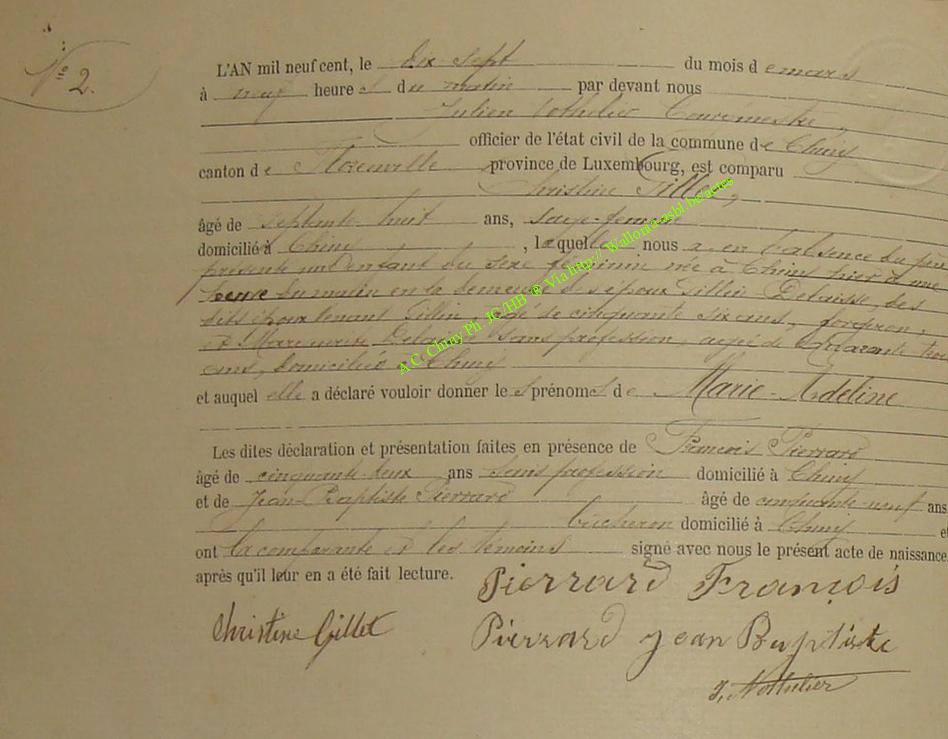 N° 2.
L'AN mil neuf cent, le dix sept du mois de mars
à neuf heures du matin par devant nous
Julien Nothelier Bourgmestre,
officier de l'état civil de la commune de Chiny
canton de Florenville province de Luxembourg, est comparu
Christine Gillet,
âgé de septante huit ans, sage-femme
domicilié à Chiny, laquelle nous a en l'absence du père
présenté un enfant du sexe féminin née à Chiny hier à une
heure du matin en la demeure des époux Gillin Delaisse, des
dits époux Gillin âgé de cinquante six ans, forgeron,
et Marie sans profession, agée de quarante trois
ans, domiciliés à Chiny
et auquel elle a déclaré vouloir donner les prénoms de Marie-Adeline
Les dites déclaration et présentation faites en présence de François Pierrard
âgé de cinquante deux ans sans profession domicilié à Chiny
et de Jean-Baptiste Pierrard âgé de cinquante neuf ans
bûcheron domicilié à Chiny et
ont la comparante et les témoins signé avec nous le présent acte de naissance
après qu'il leur en a été fait lecture.
Pierrard François
Christine Gillet
Pierrard Jean Baptiste
J. Nothelier
A.C. Chiny Ph. JC/HB @ Via http:// Wallonia.asbl.be/actes